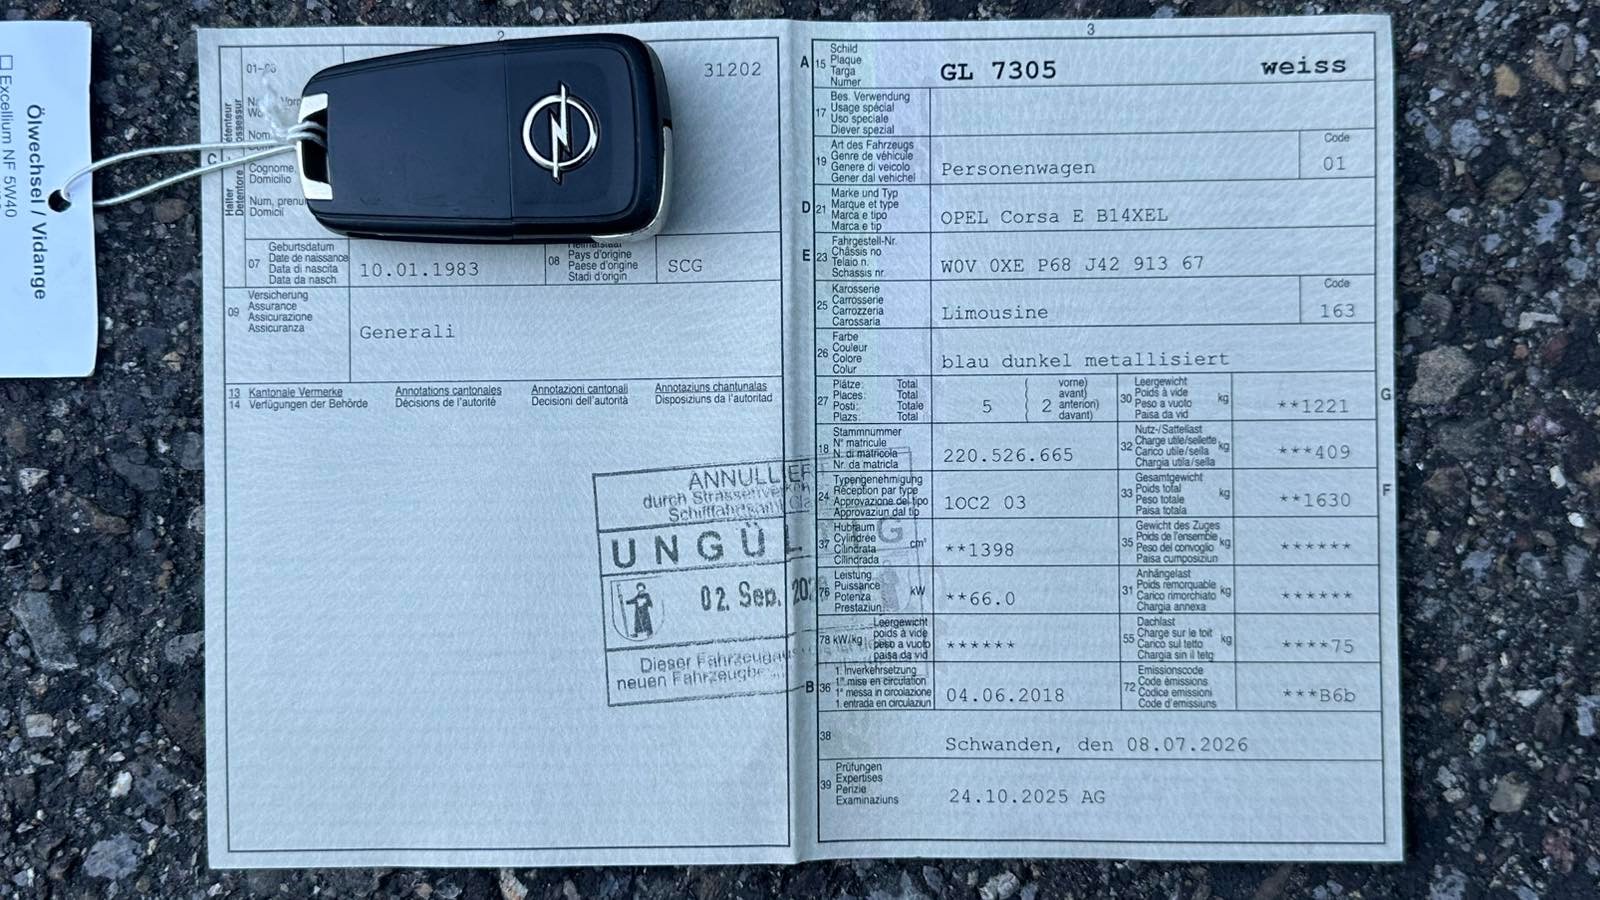 Ölwechsel / Vidange
Excellium NF 5W40
2
31202
C
Cognome,
Domicilio
Num, prenu
Domicil
07
Geburtsdatum
Date de naissance
Data di nascita
Data da nasch.
10.01.1983
08
Pays d'origine
Paese d'origine
Stadi d'origin
SCG
09
Versicherung
Assurance
Assicurazione
Assicuranza
Generali
13 Kantonale Vermerke Annotations cantonales Annotazioni cantonali Annotaziuns chantunalas
14 Verfügungen der Behörde Décisions de l'autorité Decisioni dell'autorità Disposiziuns da l'autoritad
ANNULLIER
durch Strassenverkeh
Schifffahrtsamt Gla
UNGÜLTIG
02. Sep. 202
Dieser Fahrzeugaus
neuen Fahrzeug
3
A 15
Schild
Plaque
Targa
Numer
GL 7305 weiss
17
Bes. Verwendung
Usage spécial
Uso speciale
Diever spezial
19
Art des Fahrzeugs
Genre de véhicule
Genere di veicolo
Gener dal vehichel
Personenwagen
Code
01
D 21
Marke und Typ
Marque et type
Marca e tipo
Marca e tip
OPEL Corsa E B14XEL
E 23
Fahrgestell-Nr.
Châssis no
Telaio n.
Schassis nr.
W0V 0XE P68 J42 913 67
25
Karosserie
Carrosserie
Carrozzeria
Carossaria
Limousine
Code
163
26
Farbe
Couleur
Colore
Colur
blau dunkel metallisiert
27
Plätze: Total
Places: Total
Posti: Totale
Plazs: Total
5 ( 2
vorne)
avant)
anteriori)
davant)
30
Leergewicht
Poids à vide
Peso a vuoto
Paisa da vid
kg
**1221
G
18
Stammnummer
N° matricule
N. di matricola
Nr. da matricla
220.526.665
32
Nutz-/Sattellast
Charge utile/sellette
Carico utile/sella
Chargia utila/sella
kg
***409
24
Typengenehmigung
Réception par type
Approvazione del tipo
Approvaziun dal tip
1OC2 03
33
Gesamtgewicht
Poids total
Peso totale
Paisa totala
kg
**1630
F
37
Hubraum
Cylindrée
Cilindrata
Cilindrada
cm³
**1398
35
Gewicht des Zuges
Poids de l'ensemble
Peso del convoglio
Paisa cumposiziun
kg
******
76
Leistung
Puissance
Potenza
Prestaziun
kW
**66.0
31
Anhängelast
Poids remorquable
Carico rimorchiato
Chargia annexa
kg
******
78 kW/kg
Leergewicht
poids à vide
peso a vuoto
paisa da vid
******
55
Dachlast
Charge sur le toit
Carico sul tetto
Chargia sin il tetg
kg
****75
B 36
1. Inverkehrsetzung
1re mise en circulation
1a messa in circolazione
1. entrada en circulaziun
04.06.2018
72
Emissionscode
Code émissions
Codice emissioni
Code d'emissiuns
***B6b
38
Schwanden, den 08.07.2026
39
Prüfungen
Expertises
Perizie
Examinaziuns
24.10.2025 AG